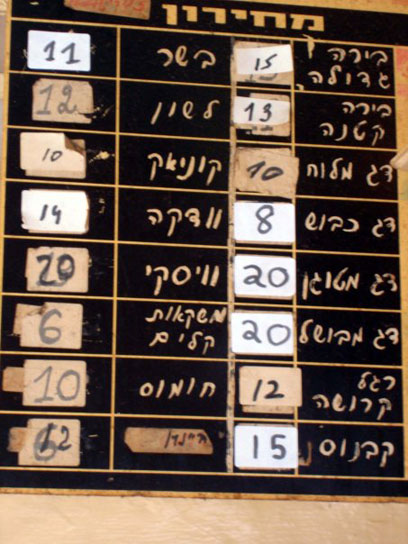 מחירון
בירה גדולה 15 בשר 11
בירה קטנה 13 לשון 12
דג מלוח 10 קוניאק 10
דג כבוש 8 וודקה 14
דג מטוגן 20 וויסקי 20
דג מבושל 20 משקאות קלים 6
רגל קרושה 12 חומוס 10
קבנוס 15 12